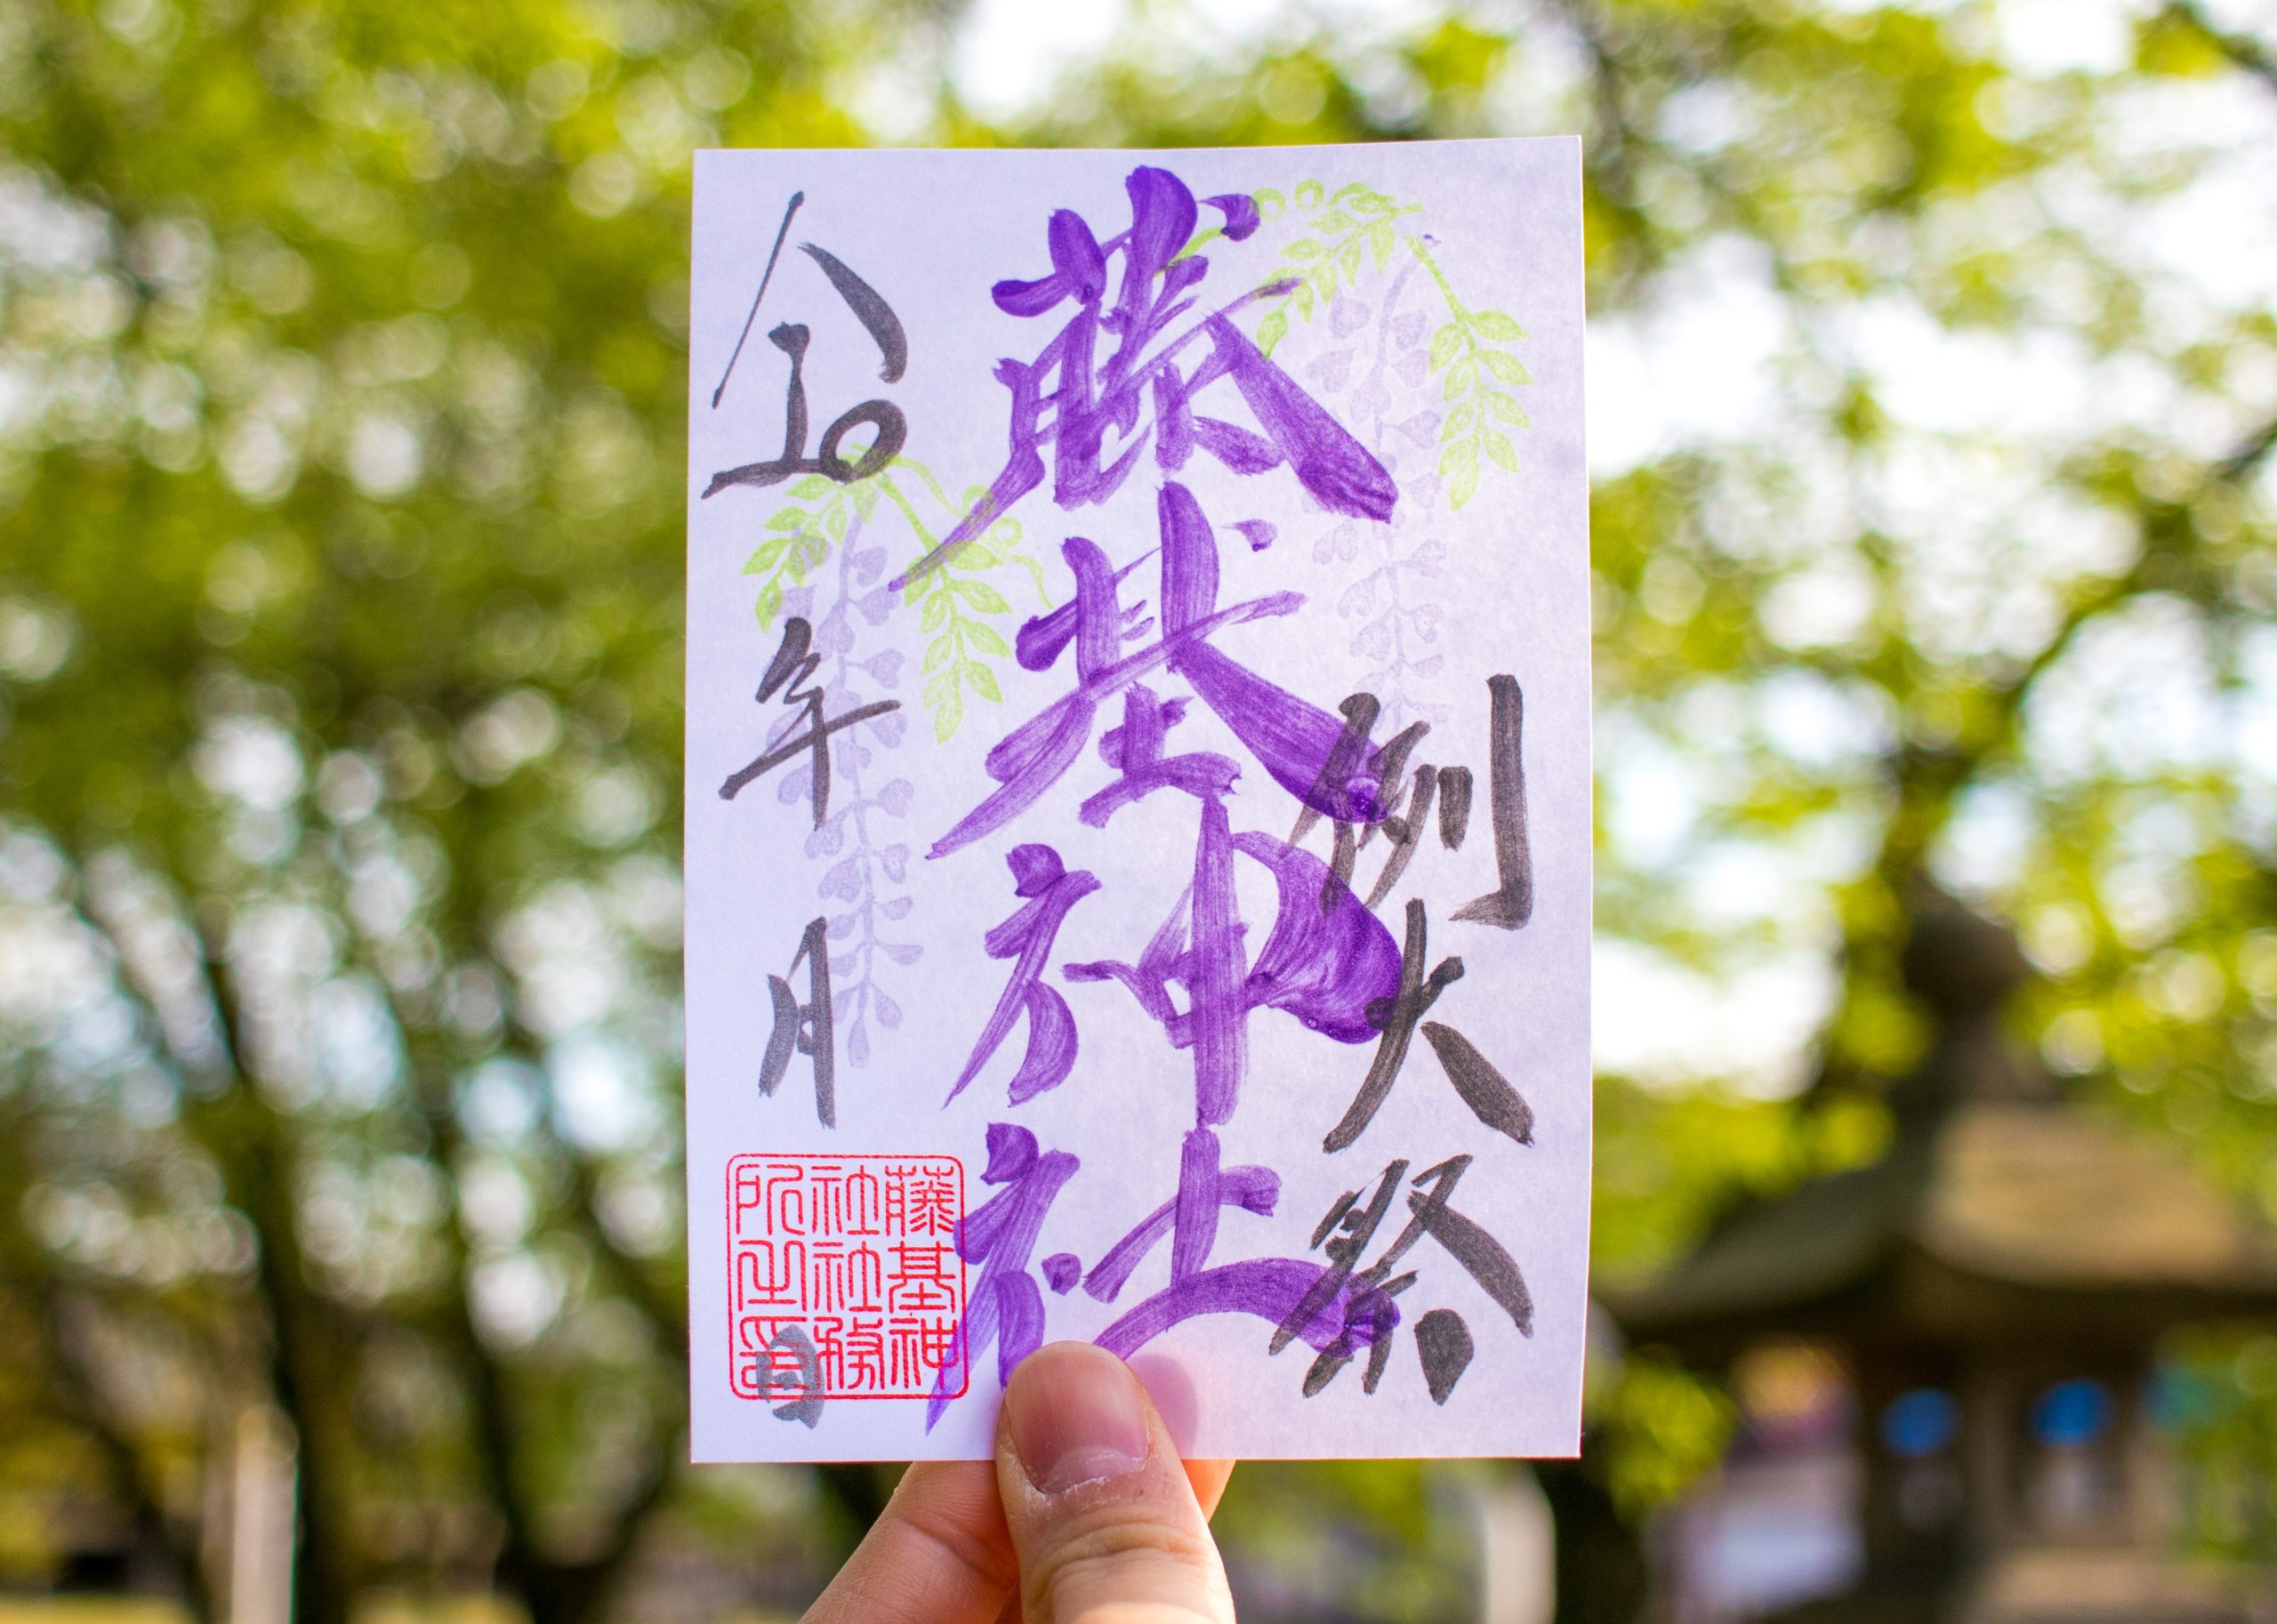 例大祭
藤基神社
年 月 日
藤基神
社社務
所之印